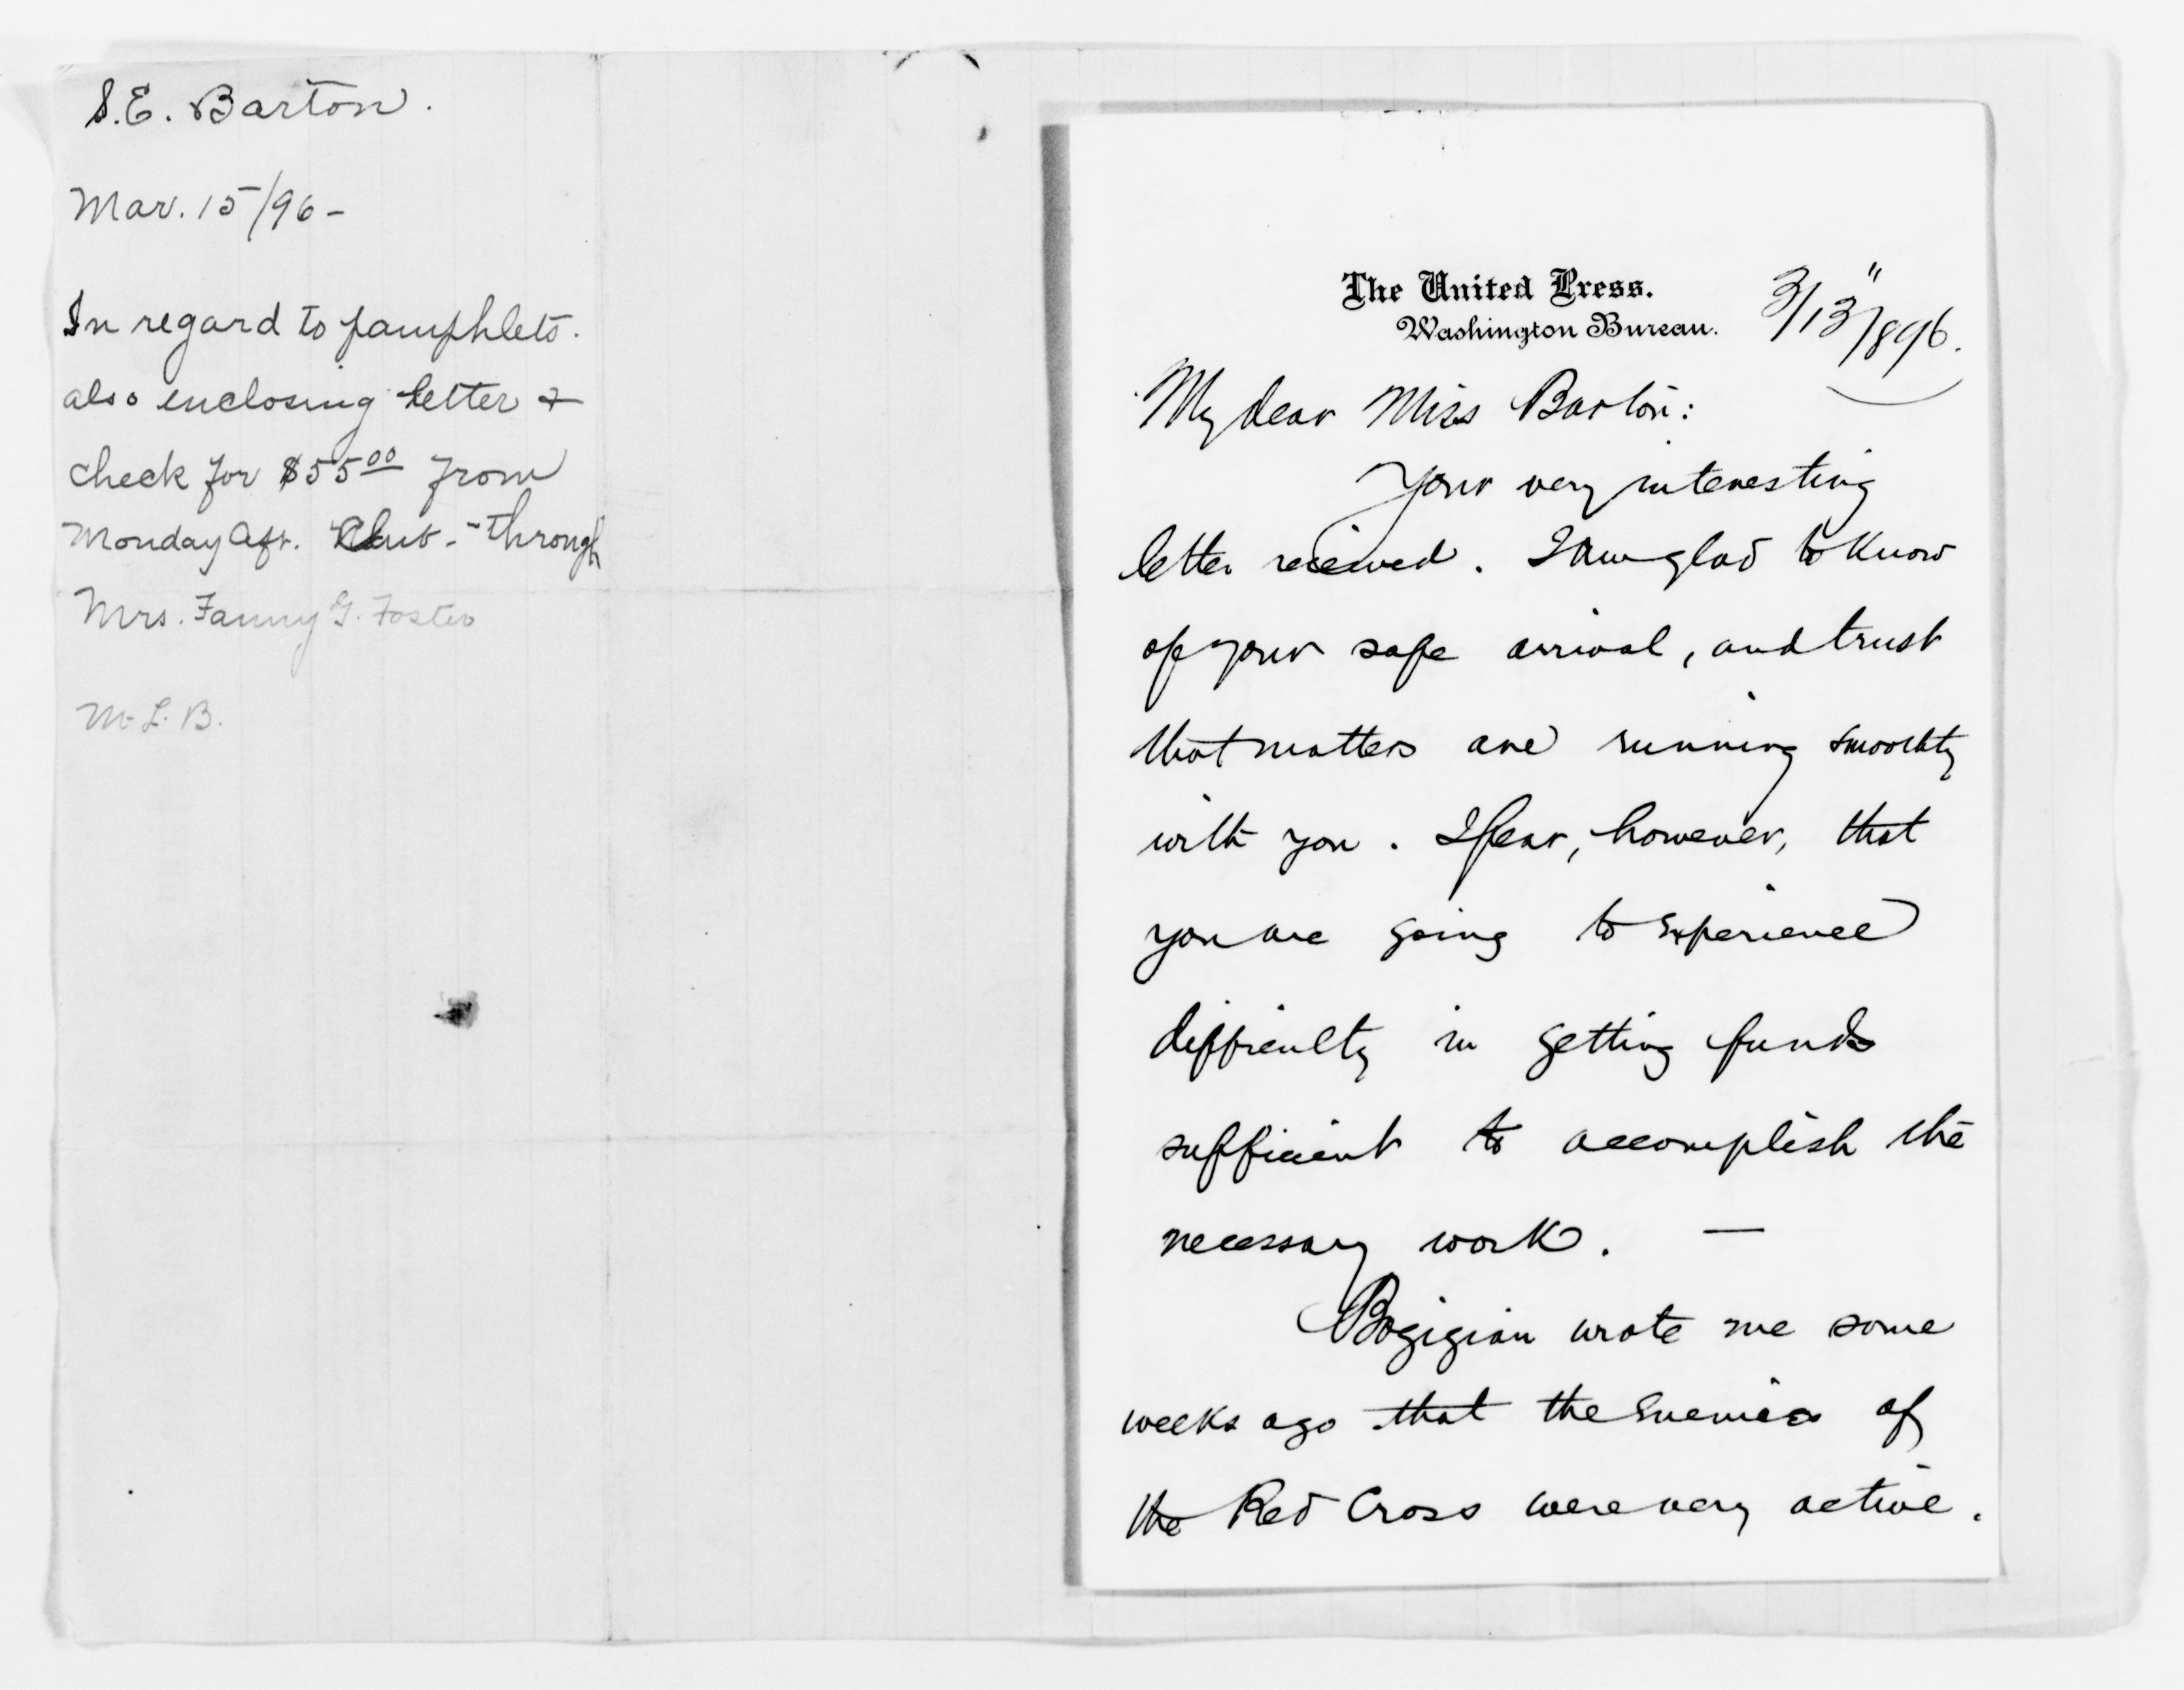 S.E. Barton.
Mar. 15/96-
In regard to pamphlets.
also enclosing letter &
check for $55.00 from
Monday Aft. Club - through
Mrs. Fanny G. Foster
M. L. B.
The United Press.
Washington Bureau.
3/13"/896.
My dear Miss Barton:
Your very interesting
letter received. I am glad to know
of your safe arrival, and trust
that matters are running smoothly
with you. I fear, however, that
you are going to experience
difficulty in getting funds
sufficient to accomplish the
necessary work. —
Bogigian wrote me some
weeks ago that the enemies of
the Red Cross were very active.